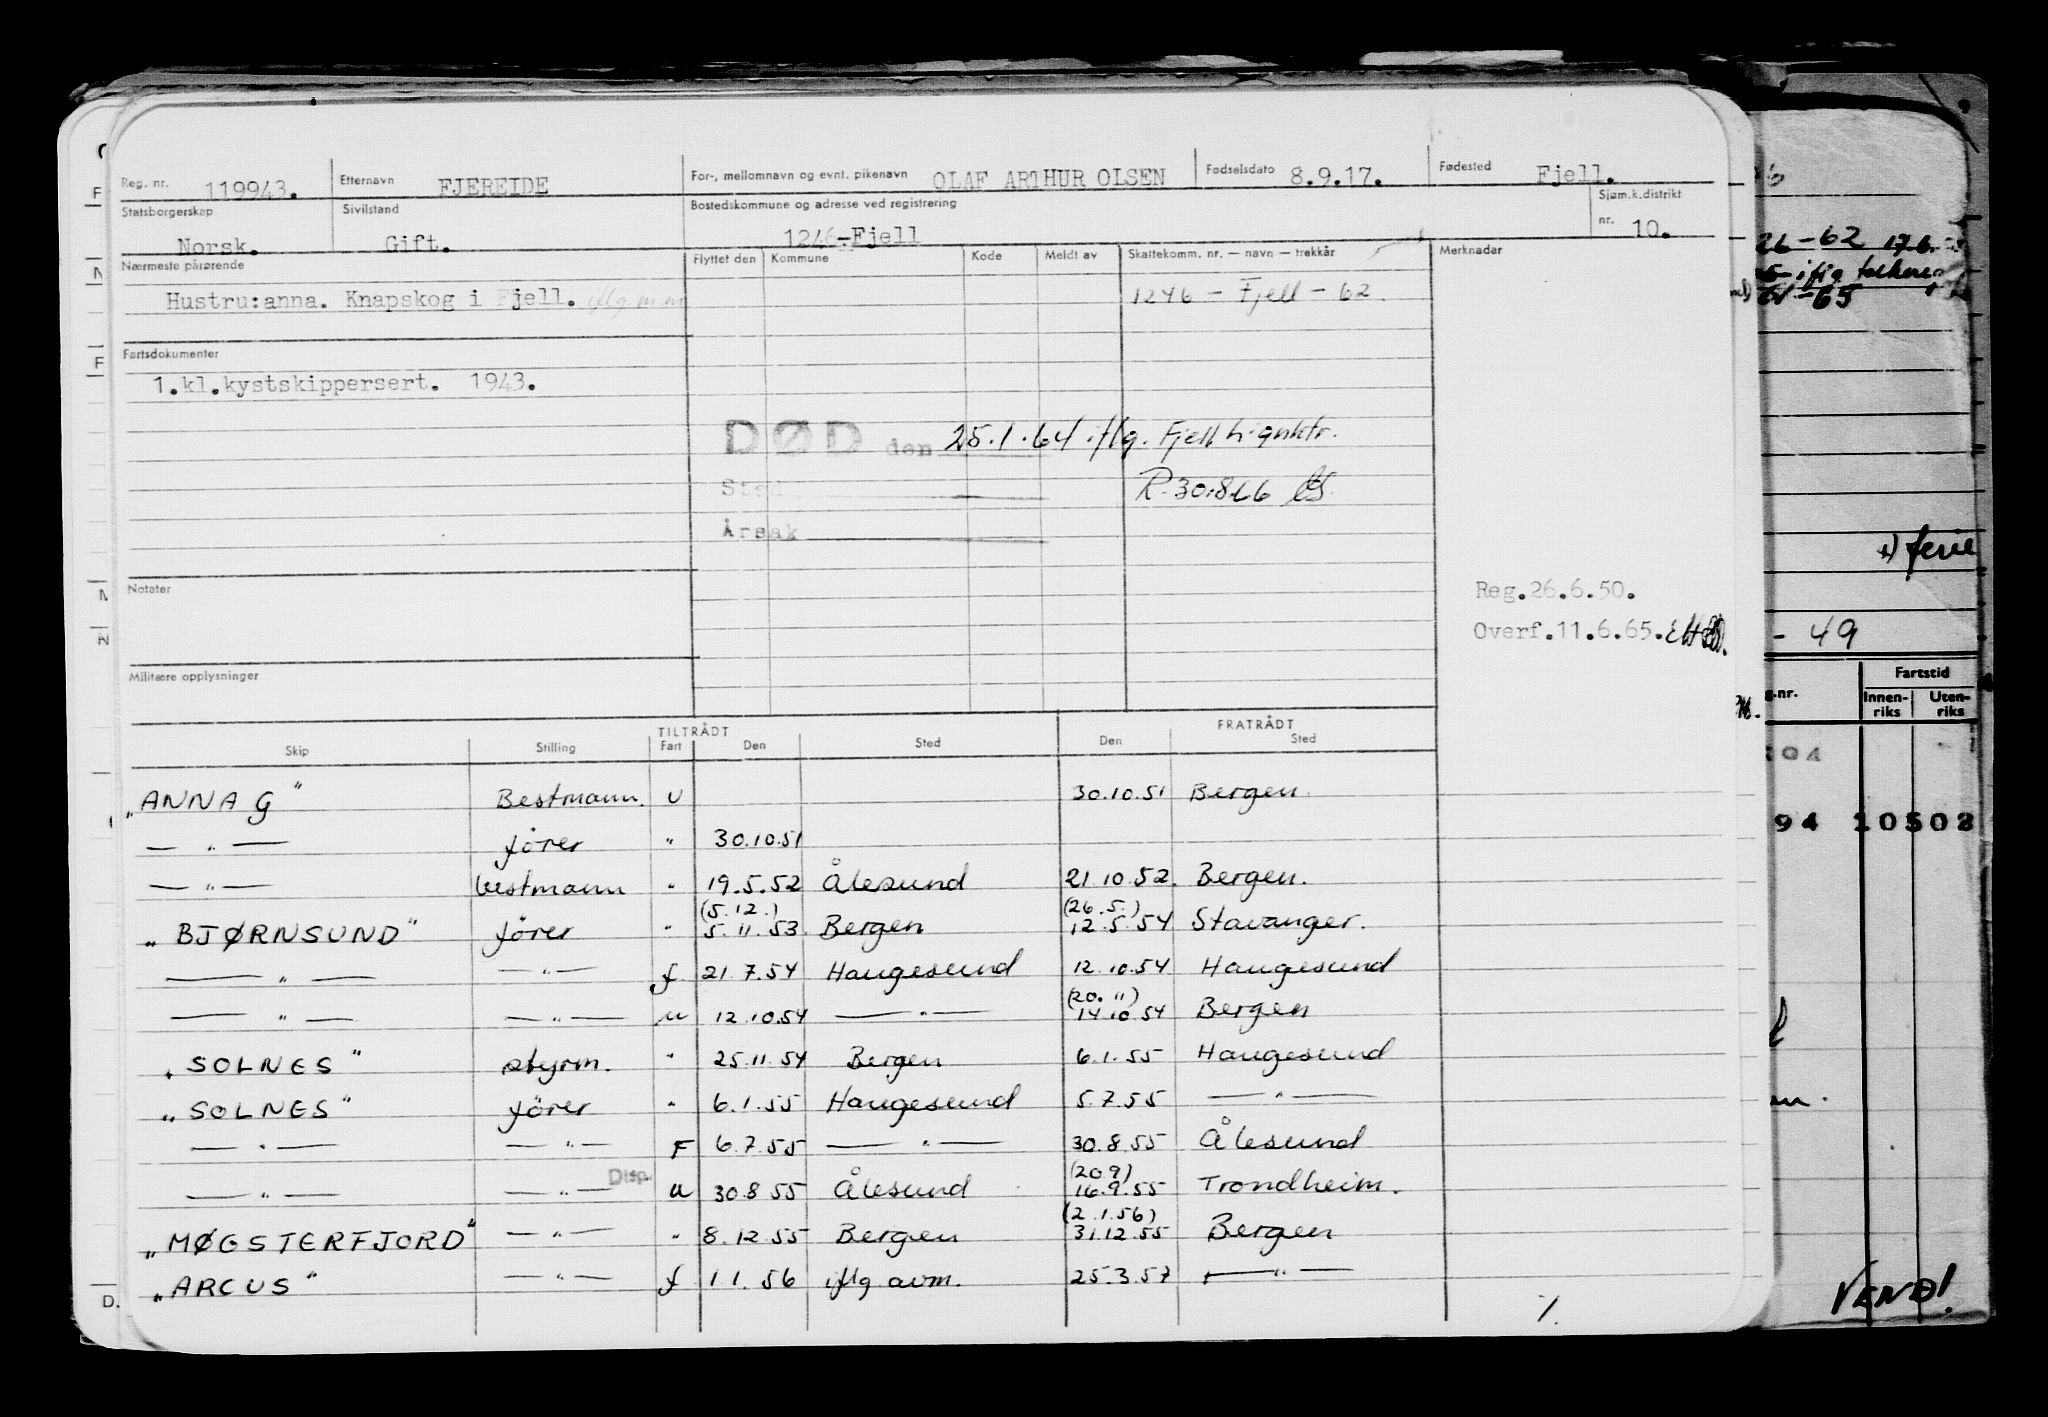 Reg. nr. 119943. Etternavn FJEREIDE For-, mellomnavn og evnt. pikenavn OLAF ARTHUR OLSEN Fødselsdato 8.9.17. Fødested Fjell.
Statsborgerskap Sivilstand Bostedskommune og adresse ved registrering Sjøm.k.distrikt
Norsk. Gift. 1246-Fjell nr. 10.
Nærmeste pårørende Flyttet den Kommune Kode Meldt av Skattekomm. nr. — navn — trekkår Merknader
Hustru:anna. Knapskog i Fjell. iflg. m.m 1246 - Fjell - 62.
Fartsdokumenter
1.kl.kystskippersert. 1943.
DØD den 25.1.64 iflg. Fjell
Sted R. 30.8.66
Årsak
Notater
Reg.26.6.50.
Overf.11.6.65.
Militære opplysninger
TILTRÅDT FRATRÅDT
Skip Stilling Fart Den Sted Den Sted
"ANNA G" Bestmann. U 30.10.51 Bergen.
— " — fører " 30.10.51
— " — bestmann " 19.5.52 Ålesund 21.10.52. Bergen.
(5.12.) (26.5.)
"BJØRNSUND" fører " 5.11.53 Bergen 12.5.54 Stavanger.
— " — — " — f 21.7.54 Haugesund 12.10.54 Haugesund
(20.11)
— " — — " — u 12.10.54 — " — 14.10.54 Bergen
"SOLNES" styrm. " 25.11.54 Bergen 6.1.55 Haugesund
"SOLNES" fører " 6.1.55 Haugesund 5.7.55 — " —
— " — — " — F 6.7.55 — " — 30.8.55 Ålesund
Disp. (20.9)
— " — — " — u 30.8.55 Ålesund 16.9.55 Trondheim.
(2.1.56)
"MØGSTERFJORD" — " — " 8.12.55 Bergen 31.12.55 Bergen
"ARCUS" — " — f 1.1.56 iflg avm. 25.3.57 — " —
./.
26-62 17.6.
61-65
x) ferie
- 49
Fartstid
g.nr. Innen-riks Uten-riks
94 10502
VEND!